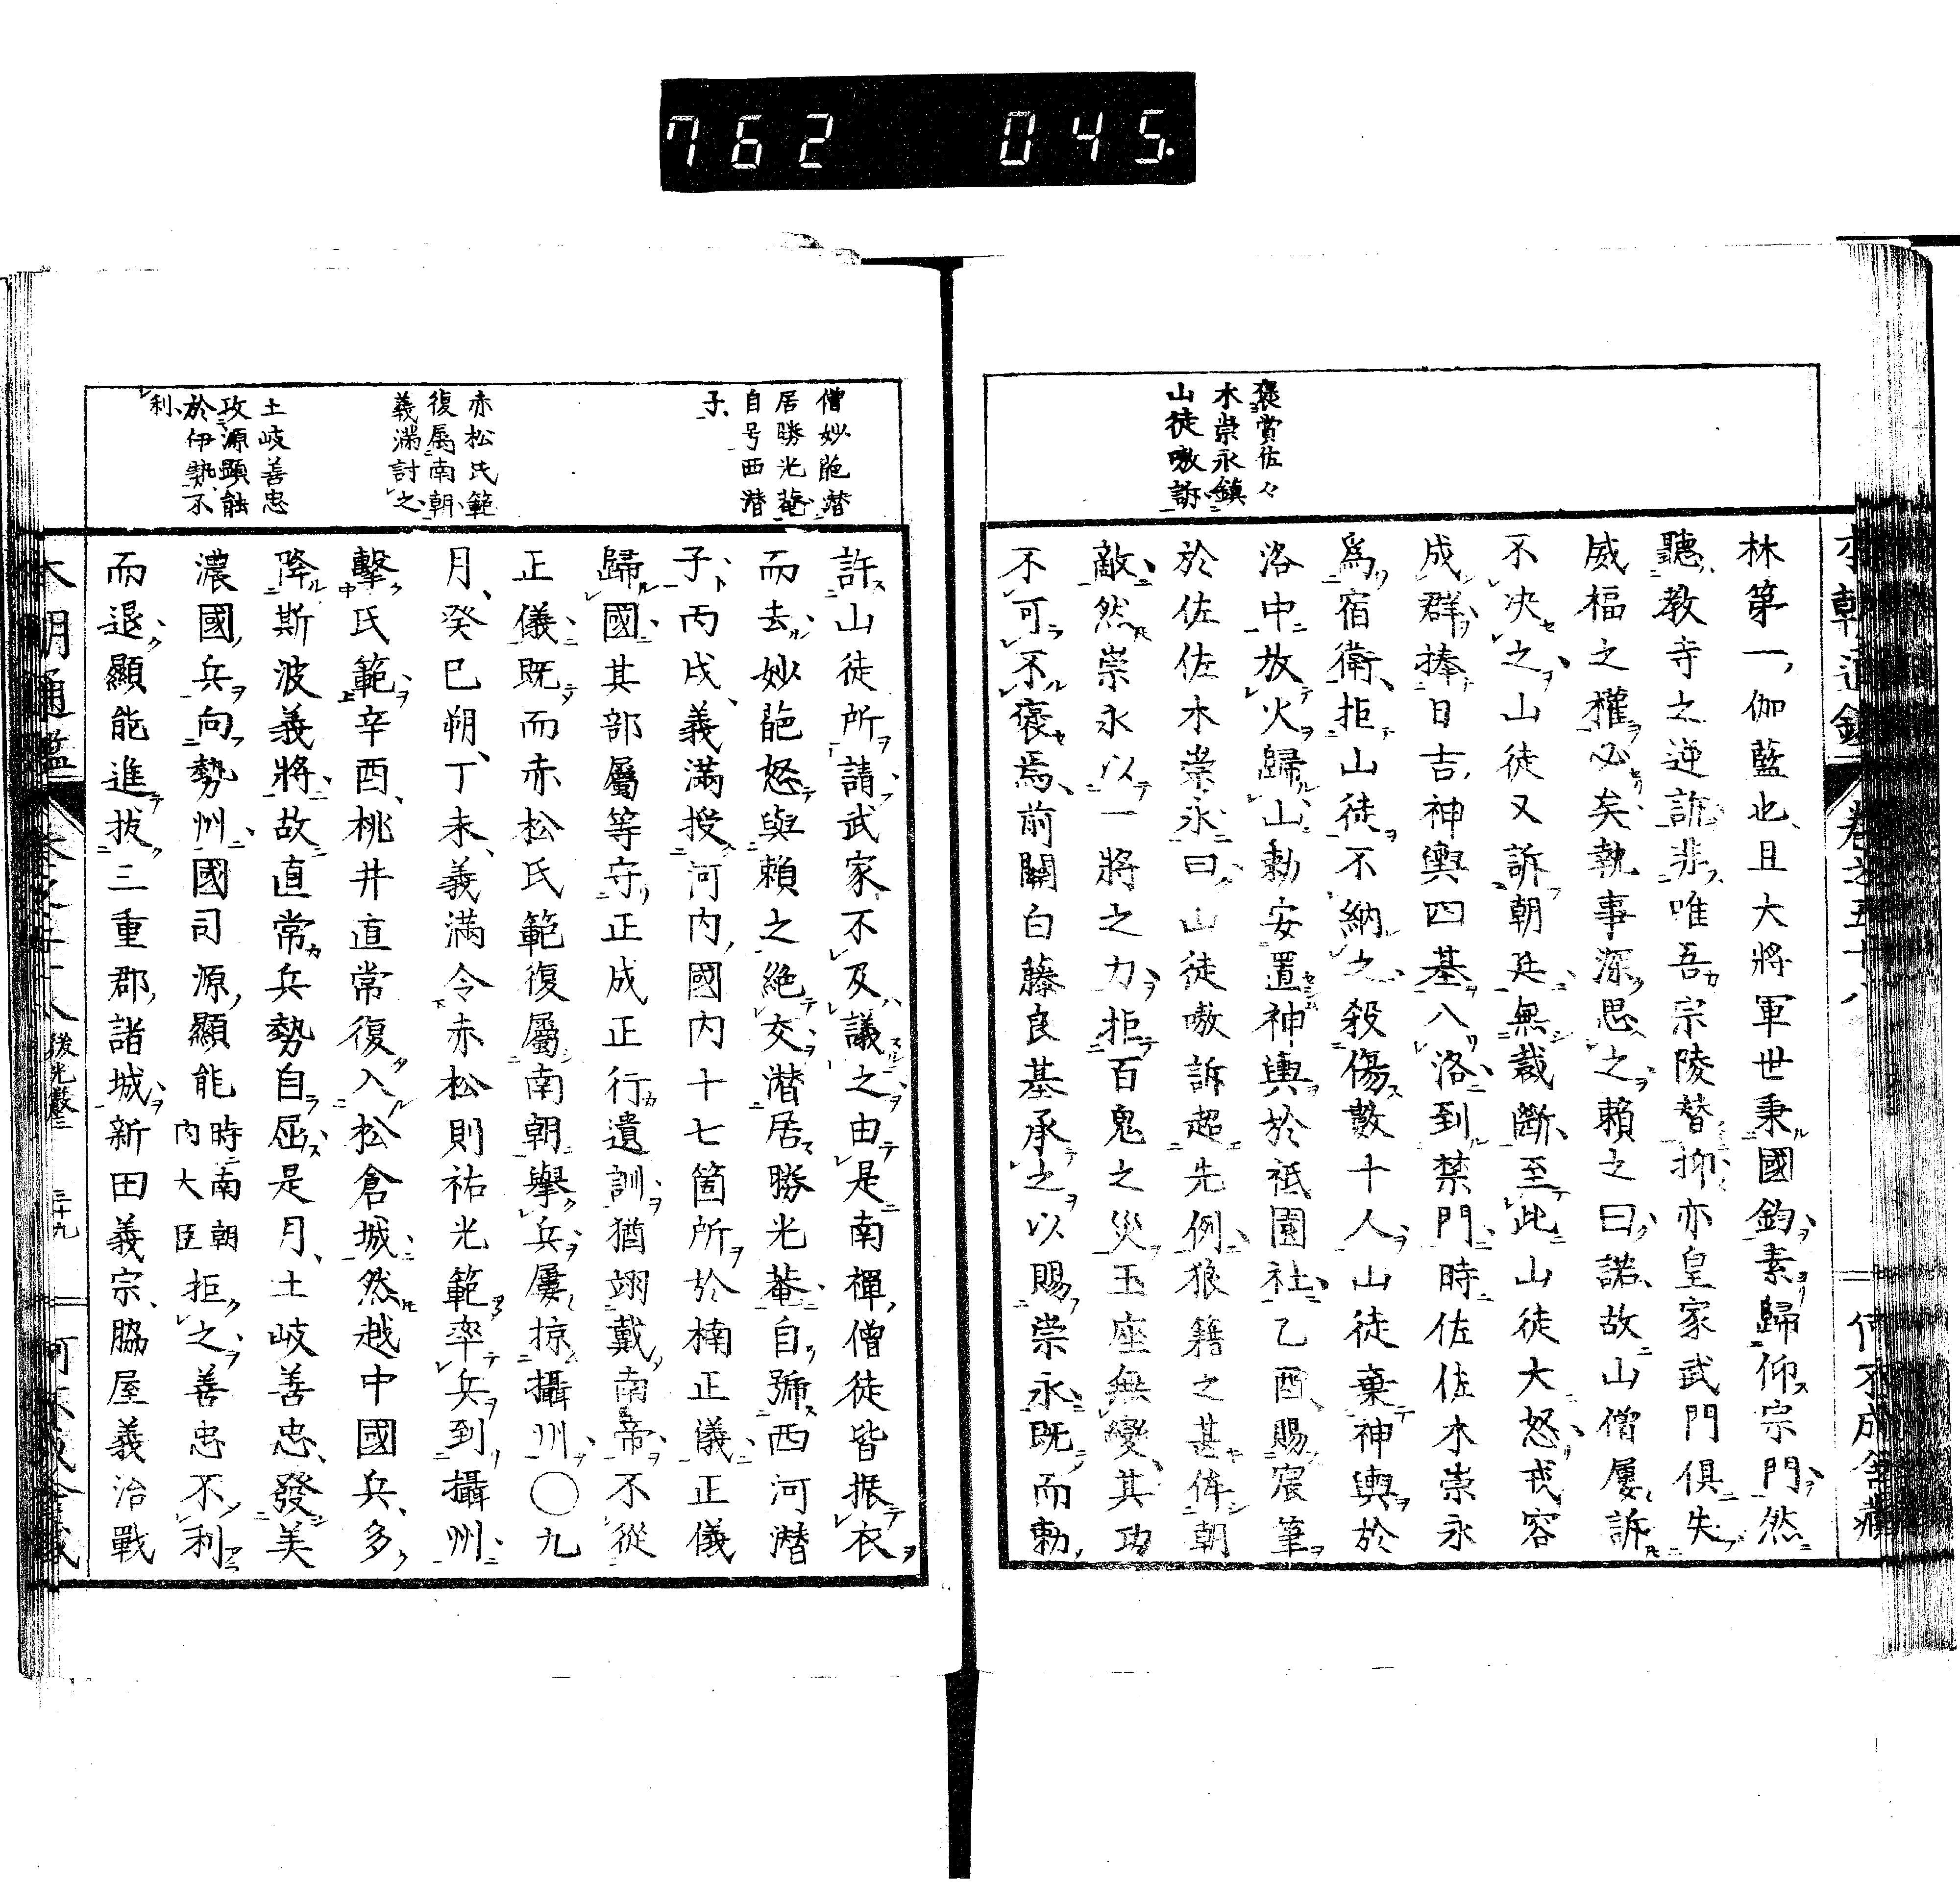 762 045.
褒賞佐々
木崇永鎮
山徒嗷訴
林第一伽藍也且大將軍世秉國鈞素歸仰宗門然
聽教寺之逆訴非唯吾宗陵替抑亦皇家武門俱失
威福之權必矣執事深思之頼之曰諾故山僧屢訴
不决之山徒又訴朝廷無裁斷至此山徒大怒戎容
成群捧日吉神輿四基入洛到禁門時佐佐木崇永
爲宿衛拒山徒不納之殺傷數十人山徒棄神輿於
洛中放火歸山勅安置神輿於祗園社乙酉賜宸筆
於佐佐木崇永曰山徒嗷訴超先例狼籍之甚侔朝
敵然崇永以一將之力拒百鬼之災玉座無變其功
不可不褒焉前關白藤良基承之以賜崇永既而勅
僧妙葩潜
居勝光菴
自号西潜
子
赤松氏範
復屬南朝
義滿討之
土岐善忠
攻源顯能
於伊勢不
利
許山徒所請武家不及議之由是南禪僧徒皆振衣
而去妙葩怒與頼之絶交潜居勝光菴自號西河潜
子丙戌義滿授河内國内十七箇所於楠正儀正儀
歸國其部屬等守正成正行遺訓猶翊戴南帝不從
正儀既而赤松氏範復屬南朝擧兵屢掠攝州〇九
月癸巳朔丁未義滿令赤松則祐光範率兵到攝州
擊氏範辛酉桃井直常復入松倉城然越中國兵多
降斯波義將故直常兵勢自屈是月土岐善忠發美
濃國兵向勢州國司源顯能時南朝内大臣拒之善忠不利
而退顯能進拔三重郡諸城新田義宗脇屋義治戰
後光嚴三
三十九